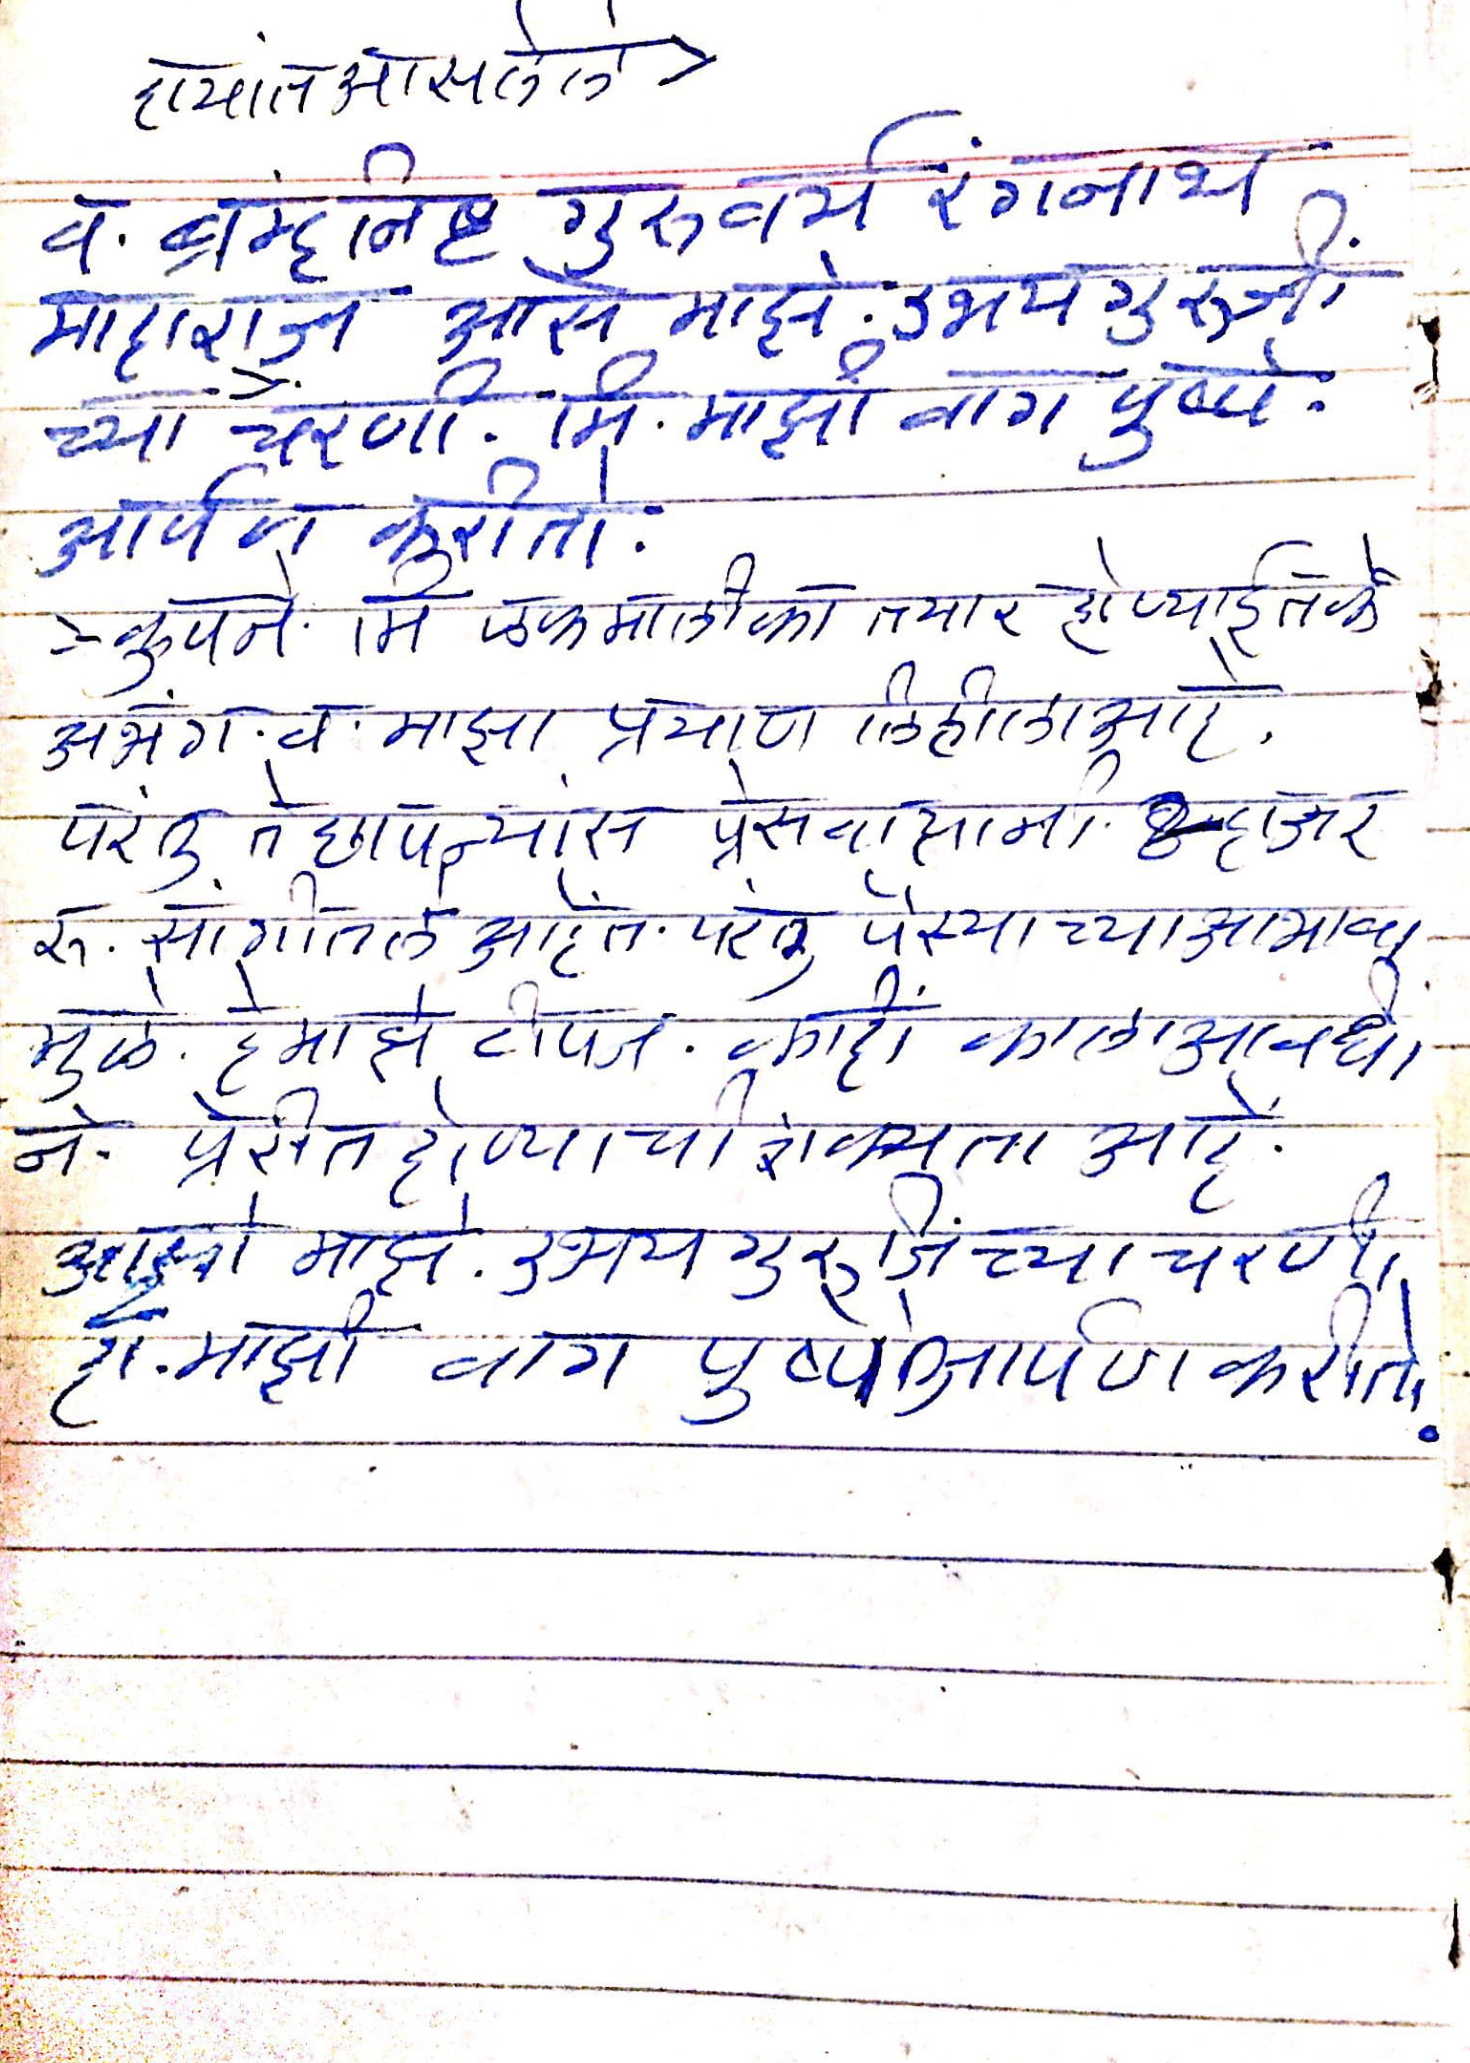 हायांत आसलेले
व. ब्रंम्हनिष्ट गुरुवर्य रंगनाथ
माहाराज आसे माझे. उभय गुरुजीं
च्या चरणी. मि. माझी वाग पुष्पे.
आर्पण करीतो.
कृपने. मि एक मालीका तयार होण्याईतके
अभंग. व. माझा प्रयाण लिहीला आहे.
परंतु ते छापन्यांस प्रेसवाल्यामी. हाजार
रु. सांगीतले आहेत. परंतु पैस्याच्या आभावा
मुळे. हे माझे टीपन. काहीं काला आवधी
ने. प्रेरीत होण्याची शक्यता आहे.
माझे. उभय गुरुजिंच्या चरणी
हा. माझी वाग पुष्पे आर्पण करीतो.